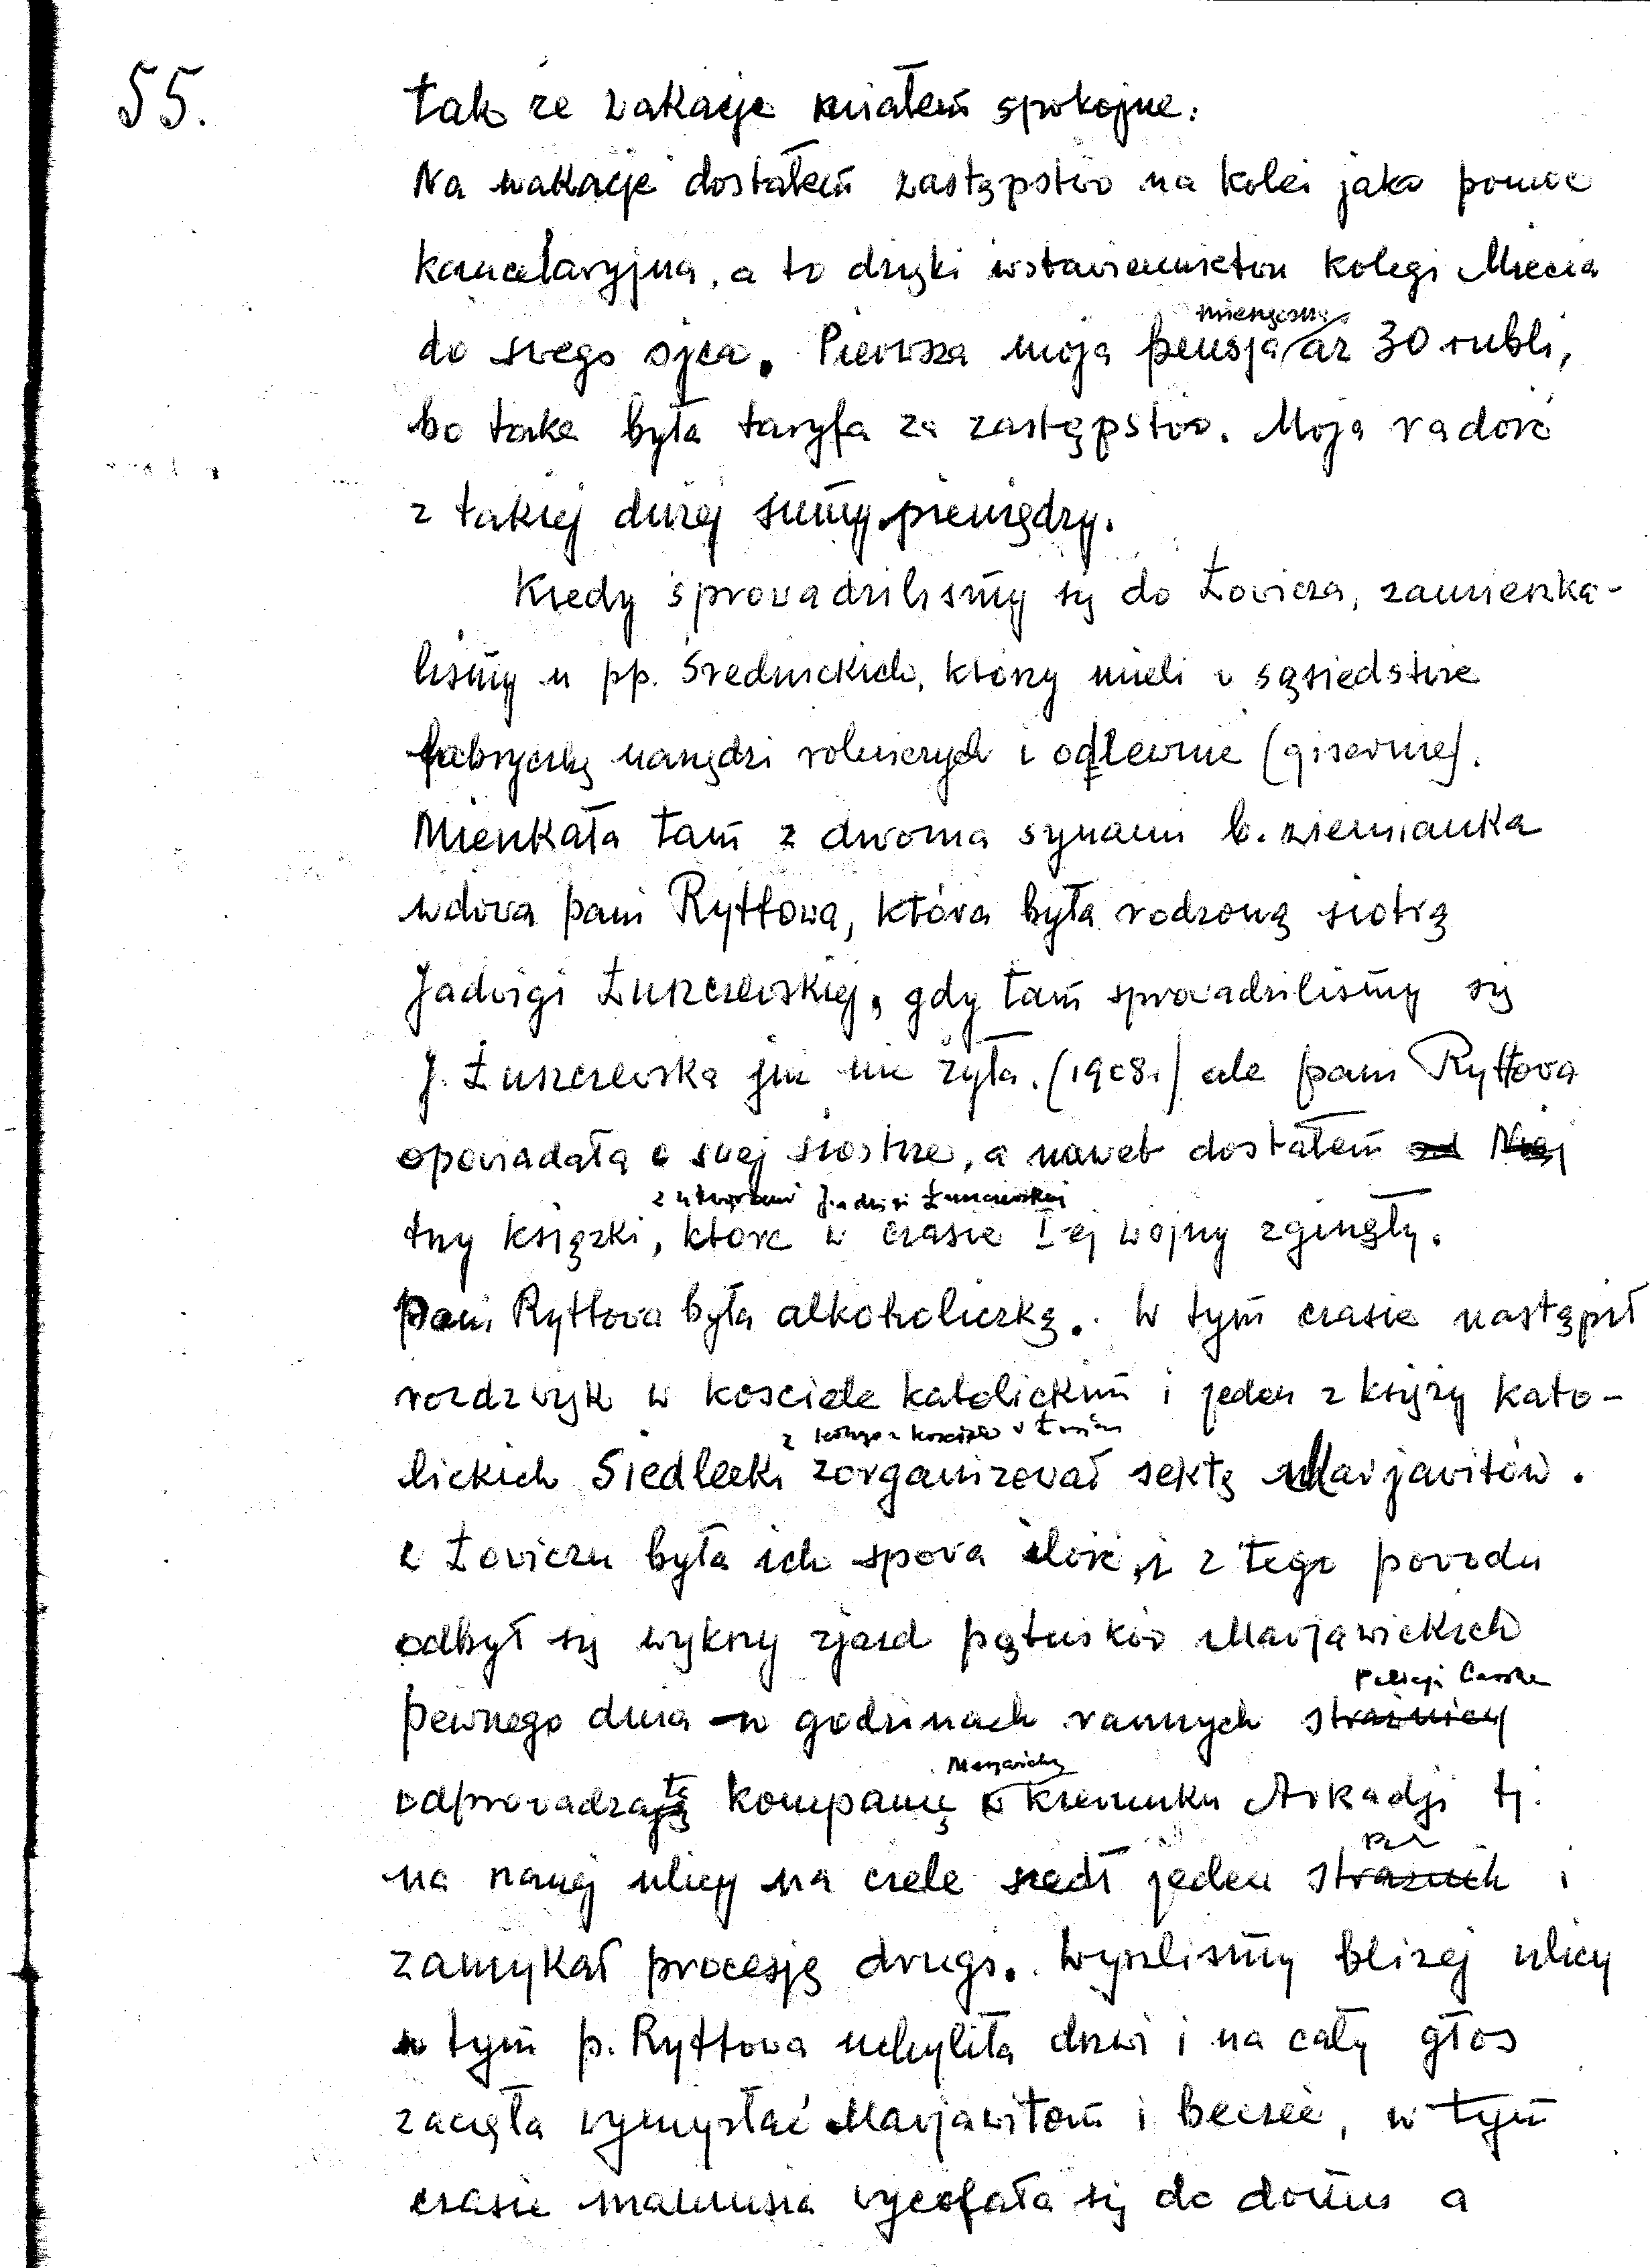 55.
tak że wakacje miałem spokojne.
Na wakacje dostałem zastępstwo na kolei jako pomoc
kancelaryjna, a to dzięki wstawiennictwu kolegi Miecia
do swego ojca. Pierwsza moja pensja miesięczna aż 30 rubli,
bo taka była taryfa za zastępstwo. Moja radość
z takiej dużej sumy pieniędzy.
Kiedy sprowadziliśmy się do Łowicza, zamieszka-
liśmy u pp. Średnickich, którzy mieli w sąsiedztwie
fabryczkę narzędzi rolniczych i odlewnie (gisernie).
Mieszkała tam z dwoma synami b. ziemianka
wdowa pani Ryttowa, która była rodzoną siostrą
Jadwigi Łuszczewskiej, gdy tam sprowadziliśmy się
J. Łuszczewska już nie żyła. (1908.) ale pani Ryttowa
opowiadała o swej siostrze, a nawet dostałem od Niej
z utworami Jadwigi Łuszczewskiej
trzy książki, które w czasie I-ej wojny zginęły.
Pani Ryttowa była alkoholiczką. W tym czasie nastąpił
rozdźwięk w kościele katolickim i jeden z księży kato-
z kościoła w Łowiczu
lickich Siedlecki zorganizował sektę Marjawitów.
w Łowiczu była ich spora ilość, i z tego powodu
odbył się wykry zjazd pątników Marjawickich
Policja Carska
pewnego dnia w godzinach rannych strażnicy
Marjawicką
odprowadzają tę kompanię w kierunku Arkadji tj.
na naszej ulicy na czele szedł jeden strażnik i
zamykał procesję drugi. Wyszliśmy bliżej ulicy
w tym p. Ryttowa uchyliła drzwi i na cały głos
zaczęła wymyślać Marjawitom i beczeć, w tym
czasie mamusia wycofała się do domu a